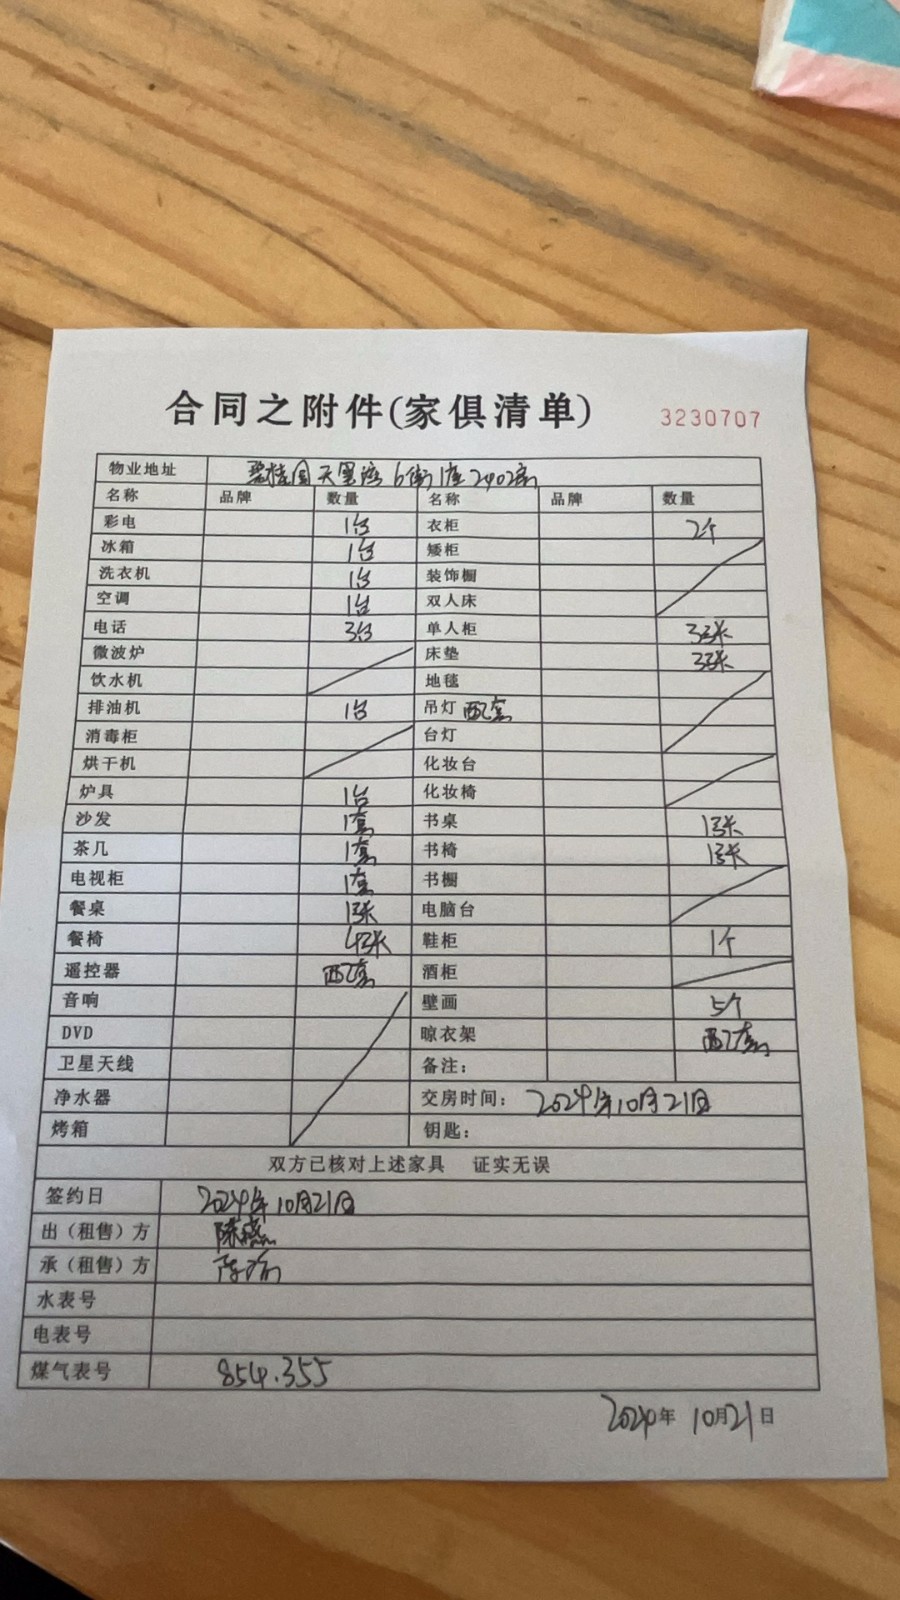 合同之附件(家俱清单) 3230707
物业地址 碧桂园天玺湾6街1座2402房
名称 品牌 数量 名称 品牌 数量
彩电 1台 衣柜 2个
冰箱 1台 矮柜
洗衣机 1台 装饰橱
空调 1台 双人床
电话 3台 单人柜 3张
微波炉 床垫 3张
饮水机 地毯
排油机 1台 吊灯 配套
消毒柜 台灯
烘干机 化妆台
炉具 1台 化妆椅
沙发 1套 书桌 1张
茶几 1套 书椅 1张
电视柜 1套 书橱
餐桌 1张 电脑台
餐椅 4张 鞋柜 1个
遥控器 配套 酒柜
音响 壁画 5个
DVD 晾衣架 配套
卫星天线 备注：
净水器 交房时间： 2024年10月21日
烤箱 钥匙：
双方已核对上述家具 证实无误
签约日 2024年10月21日
出（租售）方 陈
承（租售）方
水表号
电表号
煤气表号 854.355
2024年 10月21日